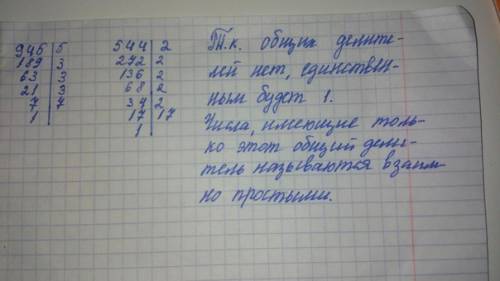 945 | 5
189 | 3
63 | 3
21 | 3
7 | 7
1
544 | 2
272 | 2
136 | 2
68 | 2
34 | 2
17 | 17
1
Т.к. общих делите-
лей нет, единствен-
ным будет 1.
Числа, имеющие толь-
ко этот общий дели-
тель называются взаим-
но простыми.